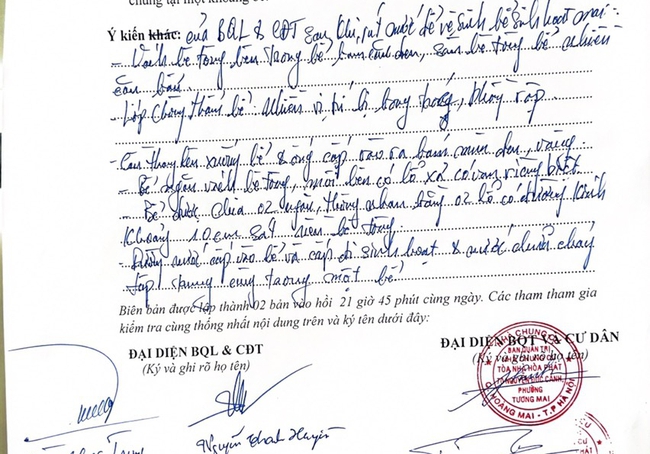 chung tại một khoảng
Ý kiến khác: của BQL & CĐT sau khi rút nước để vệ sinh bể sinh hoạt
- Vách bê tông bên trong bể bám cặn đen, sàn bê tông bể nhiều
cặn bẩn.
- Lớp chống thấm bể nhiều vị trí bị bong tróc, phồng rộp
- Cầu thang lên xuống bể & ống cấp vào ra bám màu đen, vàng.
- Bể ngăn vách bê tông, mỗi bên có lỗ xả có van riêng biệt
- Bể được chia 02 ngăn, thông nhau bằng 02 lỗ có đường kính
khoảng 10cm sát nền bê tông.
- Đường nước cấp vào bể và cấp đi sinh hoạt & nước chữa cháy
tập trung cùng trong một bể
Biên bản được lập thành 02 bản vào hồi 21 giờ 45 phút cùng ngày. Các tham tham gia
kiểm tra cùng thống nhất nội dung trên và ký tên dưới đây:
ĐẠI DIỆN BQL & CĐT
(Ký và ghi rõ họ tên)
ĐẠI DIỆN BQT VÀ CƯ DÂN
(Ký và ghi rõ họ tên)
NHÀ CHUNG CƯ
BAN QUẢN TRỊ
TÒA NHÀ HÒA PHÁT
PHƯỜNG
TƯƠNG MAI
Q. HOÀNG MAI - T.P HÀ NỘI
Nguyễn Thanh Huyền